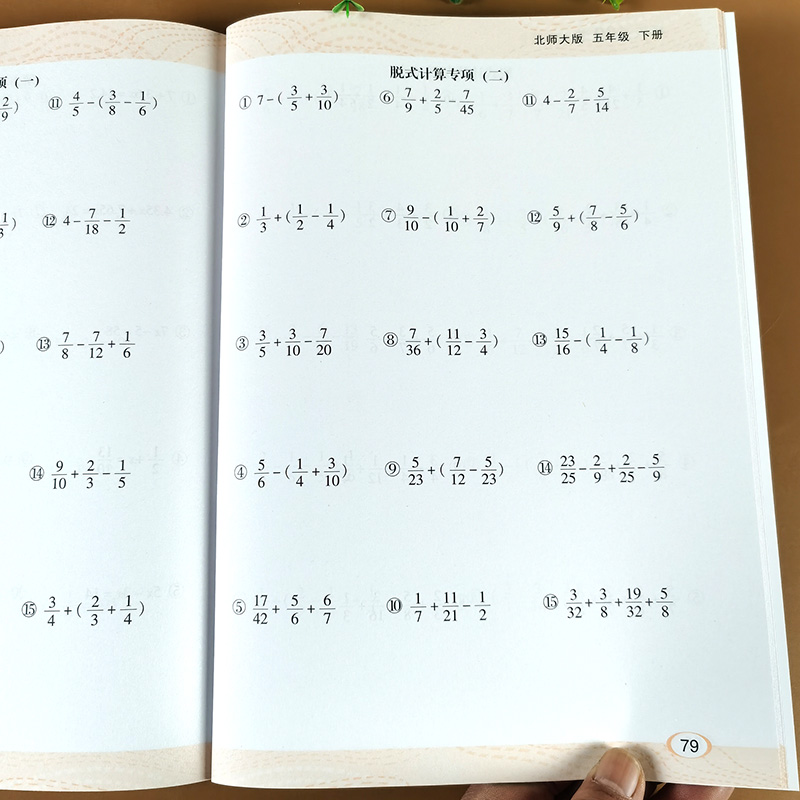 项 (一)
2/9)
⑪ 4/5-(3/8-1/6)
1/3)
⑫ 4-7/18-1/2
)
⑬ 7/8-7/12+1/6
⑭ 9/10+2/3-1/5
⑮ 3/4+(2/3+1/4)
北师大版 五年级 下册
脱式计算专项 (二)
① 7-(3/5+3/10)
⑥ 7/9+2/5-7/45
⑪ 4-2/7-5/14
② 1/3+(1/2-1/4)
⑦ 9/10-(1/10+2/7)
⑫ 5/9+(7/8-5/6)
③ 3/5+3/10-7/20
⑧ 7/36+(11/12-3/4)
⑬ 15/16-(1/4-1/8)
④ 5/6-(1/4+3/10)
⑨ 5/23+(7/12-5/23)
⑭ 23/25-2/9+2/25-5/9
⑤ 17/42+5/6+6/7
⑩ 1/7+11/21-1/2
⑮ 3/32+3/8+19/32+5/8
79